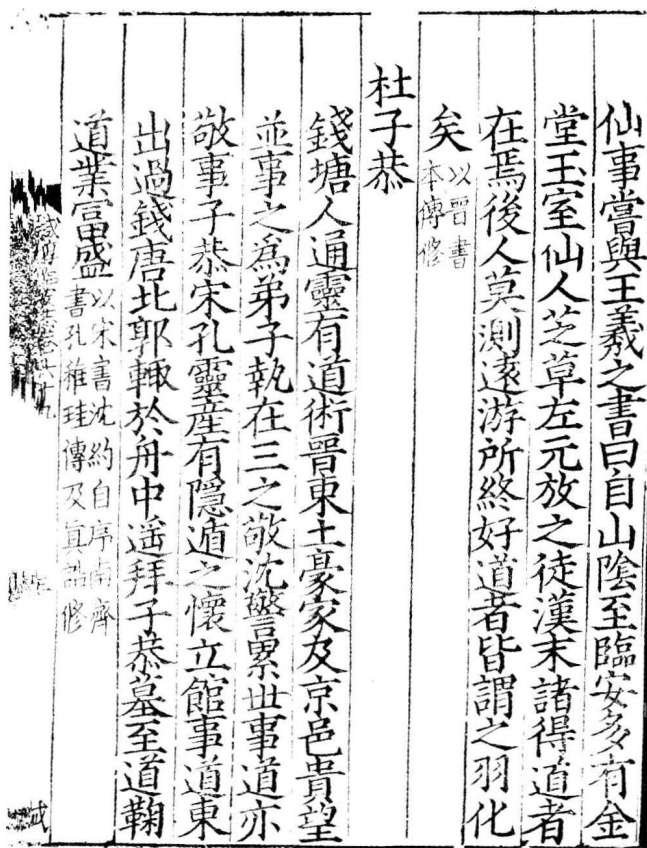 仙事嘗與王羲之書曰自山隂至臨安多有金
堂玉室仙人芝草左元放之徒漢末諸得道者
在焉後人莫測遠游所終好道者皆謂之羽化
矣以晉書本傳修
杜子恭
錢塘人通靈有道術晉東土豪家及京邑貴望
並事之爲弟子執在三之敬沈警累世事道亦
敬事子恭宋孔靈産有隱遁之懷立館事道東
出過錢唐北郭輙於舟中遥拜子恭墓至道鞠
道業富盛以宋書沈約自序南齊書孔稚珪傳及眞誥修